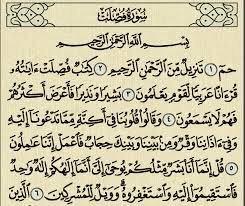 سُورَةُ فُصِّلَتْ
بِسْمِ اللَّهِ الرَّحْمَٰنِ الرَّحِيمِ
حمٓ ١ تَنزِيلٌ مِّنَ الرَّحْمَٰنِ الرَّحِيمِ ٢ كِتَابٌ فُصِّلَتْ ءَايَاتُهُۥ
قُرْءَانًا عَرَبِيًّا لِّقَوْمٍ يَعْلَمُونَ ٣ بَشِيرًا وَنَذِيرًا فَأَعْرَضَ أَكْثَرُهُمْ
فَهُمْ لَا يَسْمَعُونَ ٤ وَقَالُوا قُلُوبُنَا فِىٓ أَكِنَّةٍ مِّمَّا تَدْعُونَآ إِلَيْهِ
وَفِىٓ ءَاذَانِنَا وَقْرٌ وَمِنۢ بَيْنِنَا وَبَيْنِكَ حِجَابٌ فَاعْمَلْ إِنَّنَا عَامِلُونَ
٥ قُلْ إِنَّمَآ أَنَا۠ بَشَرٌ مِّثْلُكُمْ يُوحَىٰٓ إِلَىَّ أَنَّمَآ إِلَٰهُكُمْ إِلَٰهٌ وَاحِدٌ
فَاسْتَقِيمُوٓا إِلَيْهِ وَاسْتَغْفِرُوهُ وَوَيْلٌ لِّلْمُشْرِكِينَ ٦ الَّذِينَ